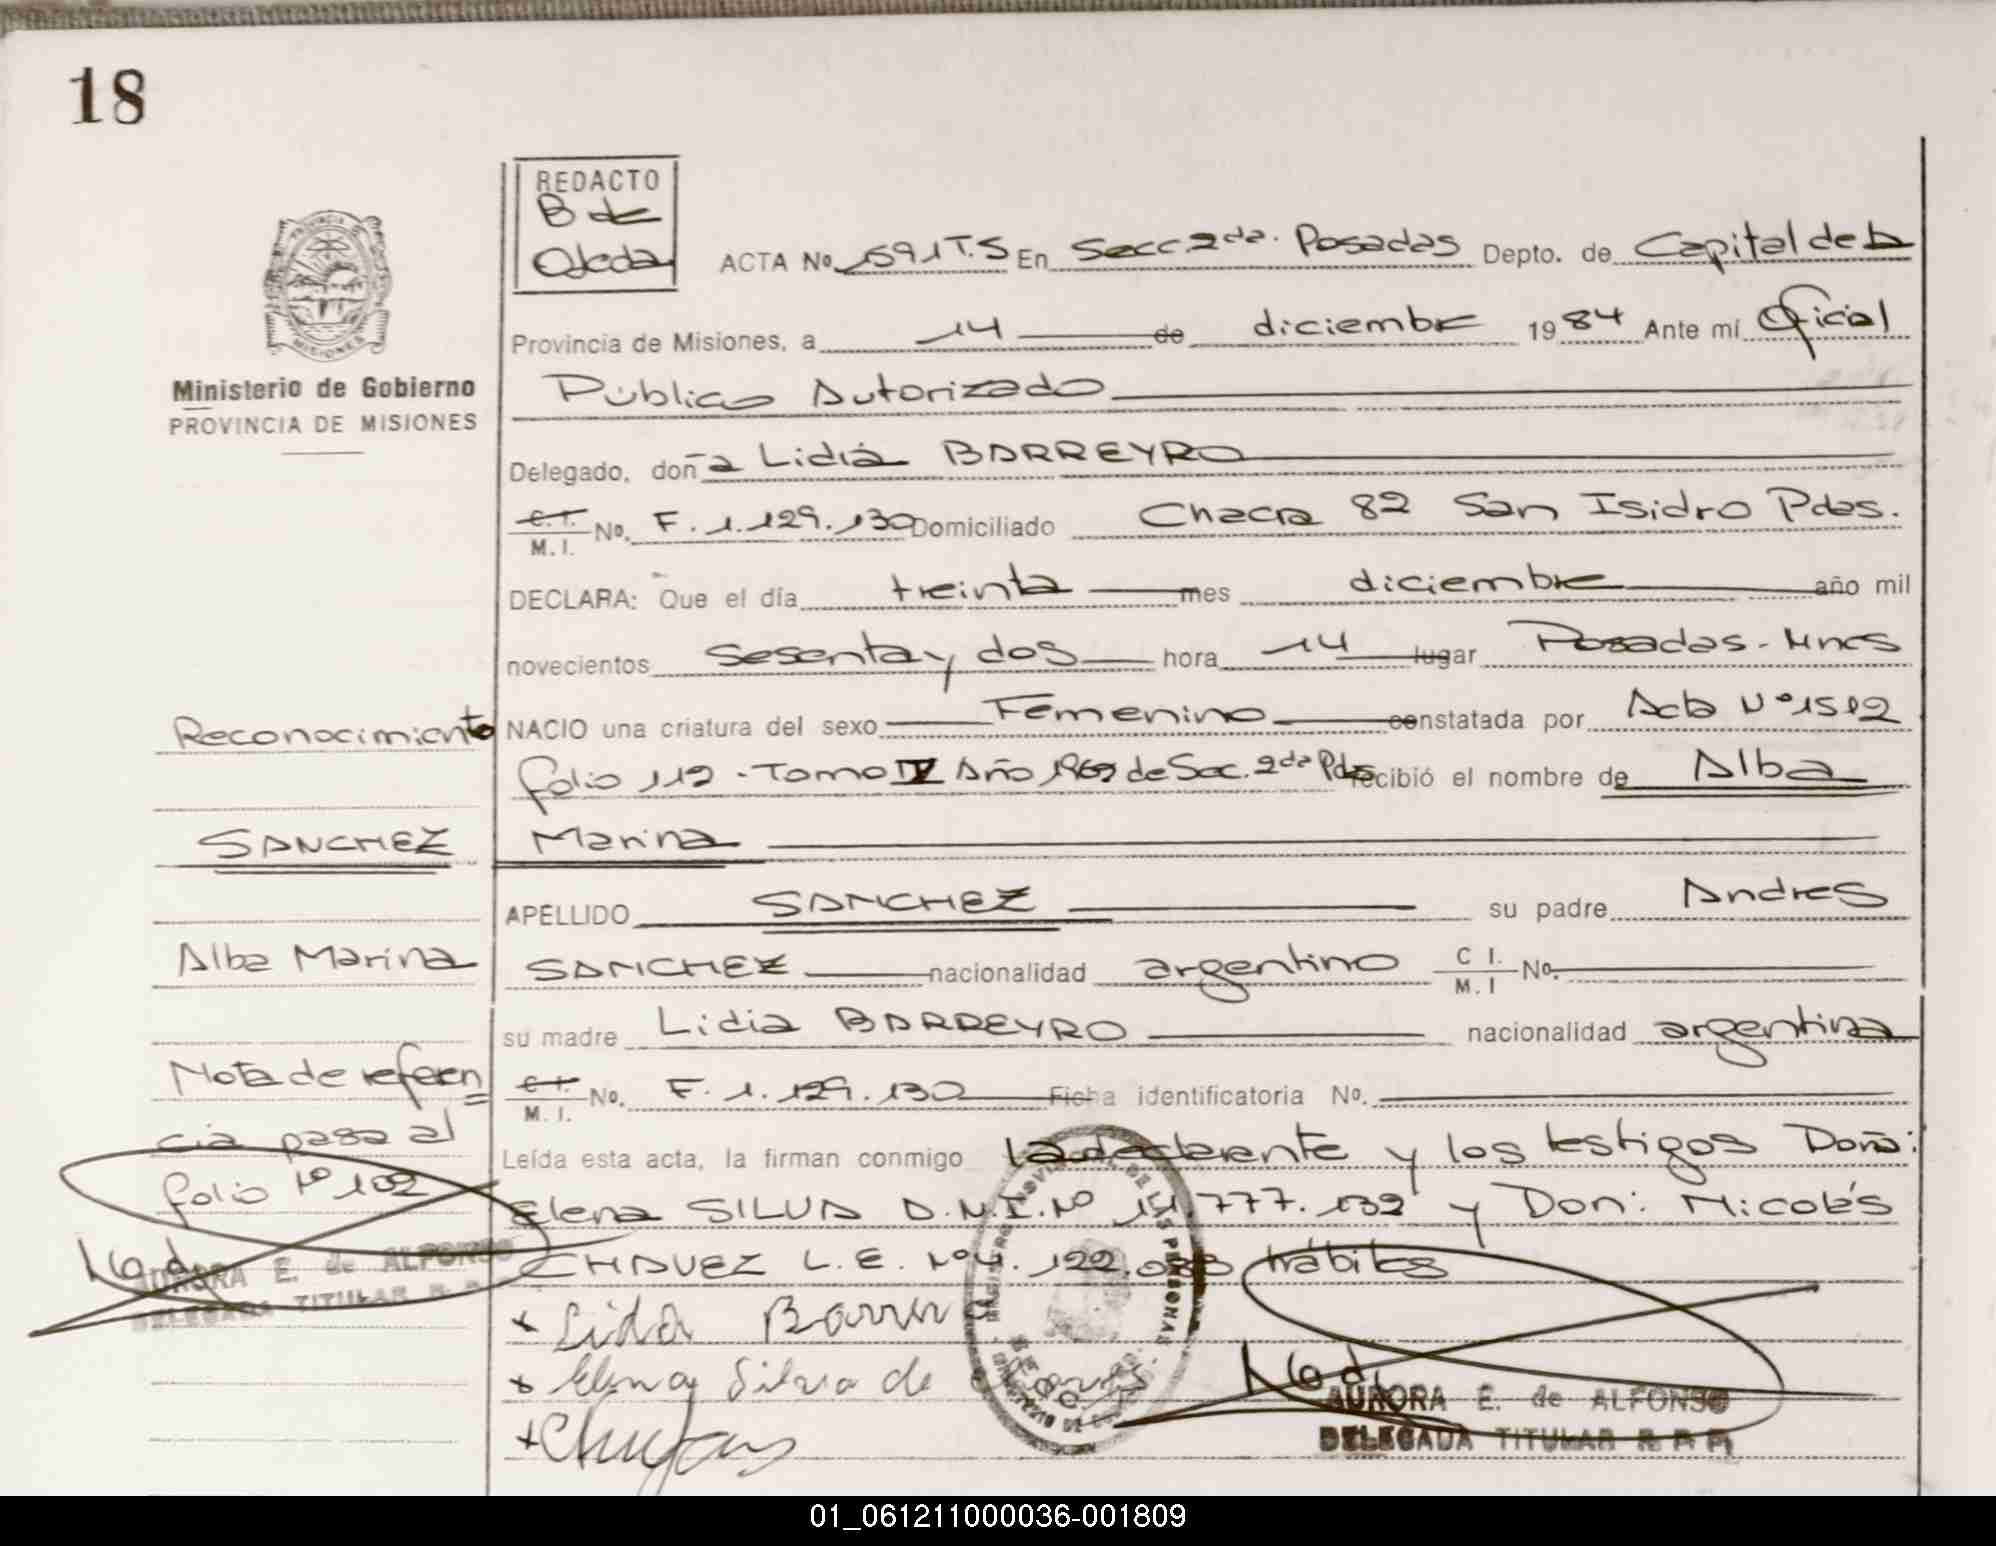 18
REDACTO
B de
Ojeda
ACTA No 1591 T.S En Secc. 2da. Posadas Depto. de Capital de la
Provincia de Misiones, a 14 de diciembre 1984 Ante mí Oficial
Público Autorizado
Delegado, doña Lidia BARREYRO
C.I. M.I. No. F. 1.129.130 Domiciliado Chacra 82 San Isidro Pdas.
DECLARA: Que el día treinta mes diciembre año mil
novecientos sesenta y dos hora 14 lugar Posadas - Mnes
NACIO una criatura del sexo Femenino constatada por Acta Nº
folio 112 - Tomo IV Año de Sec. 2da Pdas recibió el nombre de Alba
Marina
APELLIDO SANCHEZ su padre Andres
SANCHEZ nacionalidad argentino C I. M. I No.
su madre Lidia BARREYRO nacionalidad argentina
C.I. M. I. No. F. 1.129.130 Ficha identificatoria No.
Leída esta acta, la firman conmigo la declarante y los testigos Doña:
Elena SILVA D.N.I. Nº 777.132 y Don: Nicolás
CHAVEZ L.E. Nº hábiles
Lidia
Elena Silva de
AURORA E. de ALFONSO
DELEGADA TITULAR R P P
PROVINCIA DE
MISIONES
Ministerio de Gobierno
PROVINCIA DE MISIONES
Reconocimiento
SANCHEZ
Alba Marina
Nota de referen
cia pasa al
folio Nº 102
AURORA E. de ALFONSO
DELEGADA TITULAR R. P.
01_061211000036-001809